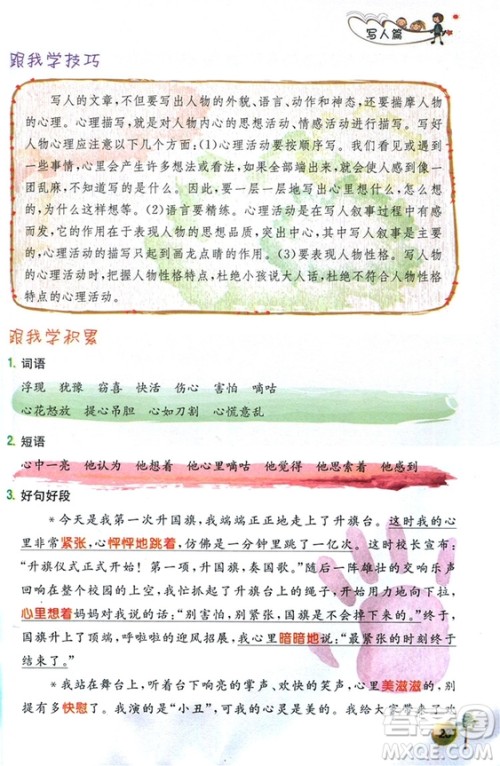 写人篇
跟我学技巧
写人的文章，不但要写出人物的外貌、语言、动作和神态，还要揣摩人物
的心理。心理描写，就是对人物内心的思想活动、情感活动进行描写。写好
人物心理应注意以下几个方面：(1)心理活动要按顺序写。我们见到或听到
一些事情，心里会产生许多想法或看法，如果全部端出来，就会写得像一
团乱麻，不知写的是什么。因此，要一层一层地写出心里想什么，怎么想
的，为什么这样想。(2)语言要精练。心理活动的描写在写人叙事过程中运
用，它的作用在于表现人物的思想品质、情感变化等。在写人叙事文章中
的，心理活动的描写只起到画龙点睛的作用。(3)要表现人物性格特点。写
人物心理活动时，把握人物性格特点，杜绝小孩说大人话，杜绝不符合人物性格
特点的心理活动。
跟我学积累
1. 词语
浮现 犹豫 窃喜 快活 伤心 害怕 嘀咕
心花怒放 提心吊胆 心如刀割 心慌意乱
2. 短语
心中一亮 他认为 他想着 他心里嘀咕 他觉得 他思索着 他感到
3. 好句好段
＊今天是我第一次升国旗，我端端正正地走上了升旗台。这时我的心
里非常紧张，心怦怦地跳着，仿佛是一分钟里跳了一亿次。这时校长宣布：
“升旗仪式正式开始！第一项，升国旗，奏国歌。”随后一阵雄壮的交响乐声
回荡在整个校园的上空，我激动极了，
心里想着妈妈对我说的话：“别害怕，别紧张，国旗是不会掉下来的。”终于，
国旗升上了顶端，呼啦啦的迎风招展，我心里暗暗地说：“最紧张的时刻终于
结束了。”
＊我站在舞台上，听到观众的掌声、欢快的笑声，心里美滋滋的，别
提有多快慰了。我演的是“小丑”，可我的心灵是美的。我给大家带来了开
答案圈
MXQE.COM